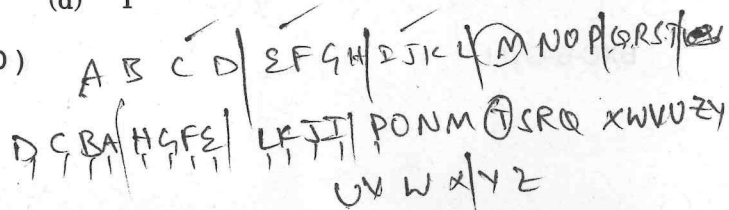 (d) 1
) A B C D | E F G H | I J K L | M N O P | Q R S T |
D C B A | H G F E | L K J I | P O N M T S R Q X W V U Z Y
U V W X | Y Z